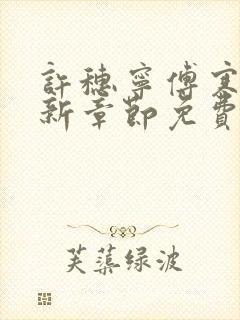 許穗寧傅寒
新章節免費
芙蕖绿波